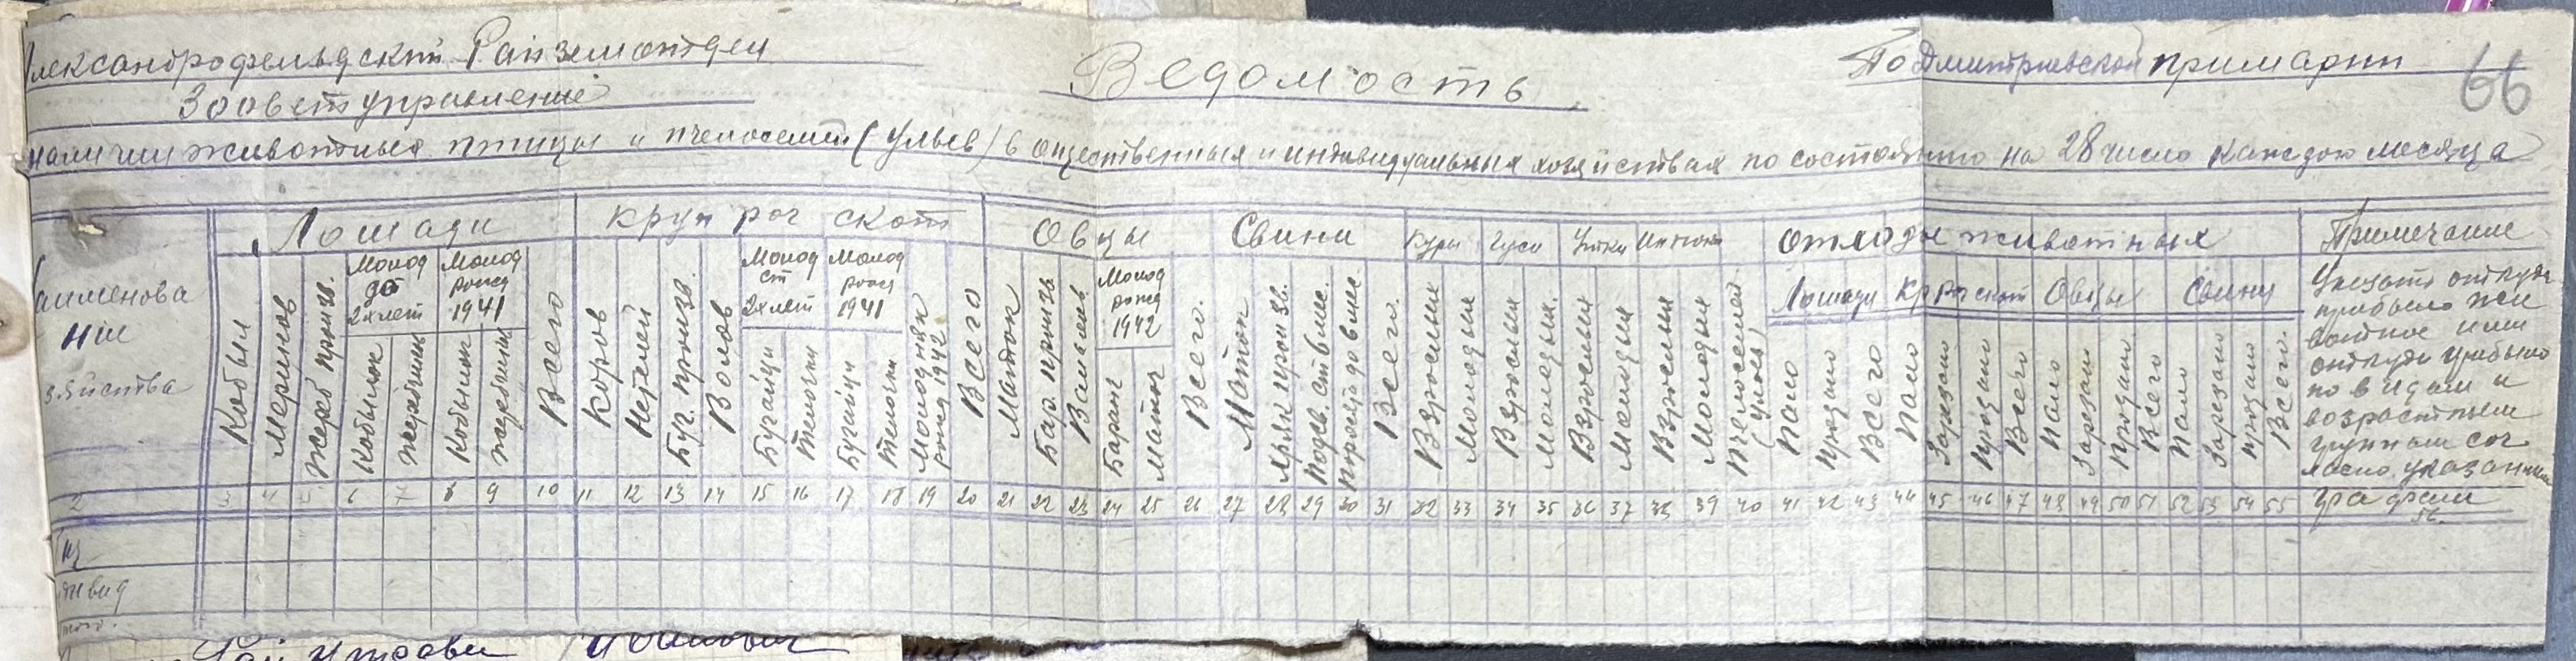 Александрофельдский Райземотдел
Зооветуправление
Ведомость
По Дмитриевской примарии
66
наличии животных птицы и пчелосемей (ульев) в общественных и индивидуальных хозяйствах по состоянию на 28 число каждого месяца
Лошади Круп рог скот Овцы Свини Куры Гуси Утки Индюки Отходы животных Примечание
Лошади Кр рог скот Овцы Свини
аименова
ние
зяйства
Кобыл
Меринов
Жереб произв.
Молод до 2х лет
Кобылок
Жеребчик
Молод рожд 1941
Кобылок
Жеребчик
Всего
Коров
Нетелей
Буг. произв.
Волов
Молод ст 2х лет
Бугайци
Телочки
Молод рожд 1941
Бугайци
Телочки
Молодняк рожд 1942
Всего
Маток
Бар. произв
Валахов
Молод рожд 1942
Баран
Маток
Всего.
Маток
Хряк произв.
Подсв. ст 6 мес.
Поросят до 6 мес.
Всего.
Взрослых
Молодых
Взрослых
Молодых.
Взрослых
Молодых
Взрослых
Молодых
Пчелосемей (ульев)
Пало
Продано
Всего
Пало
Зарезано
Продано
Всего
Пало
Зарезан
Продано
Всего
Пало
Зарезано
Продано
Всего.
Указать откуда
прибыло жи
вотное или
откуда убыло
по видам и
возрастным
группам сог
ласно указанным
графам
2 3 4 5 6 7 8 9 10 11 12 13 14 15 16 17 18 19 20 21 22 23 24 25 26 27 28 29 30 31 32 33 34 35 36 37 38 39 40 41 42 43 44 45 46 47 48 49 50 51 52 53 54 55 56.